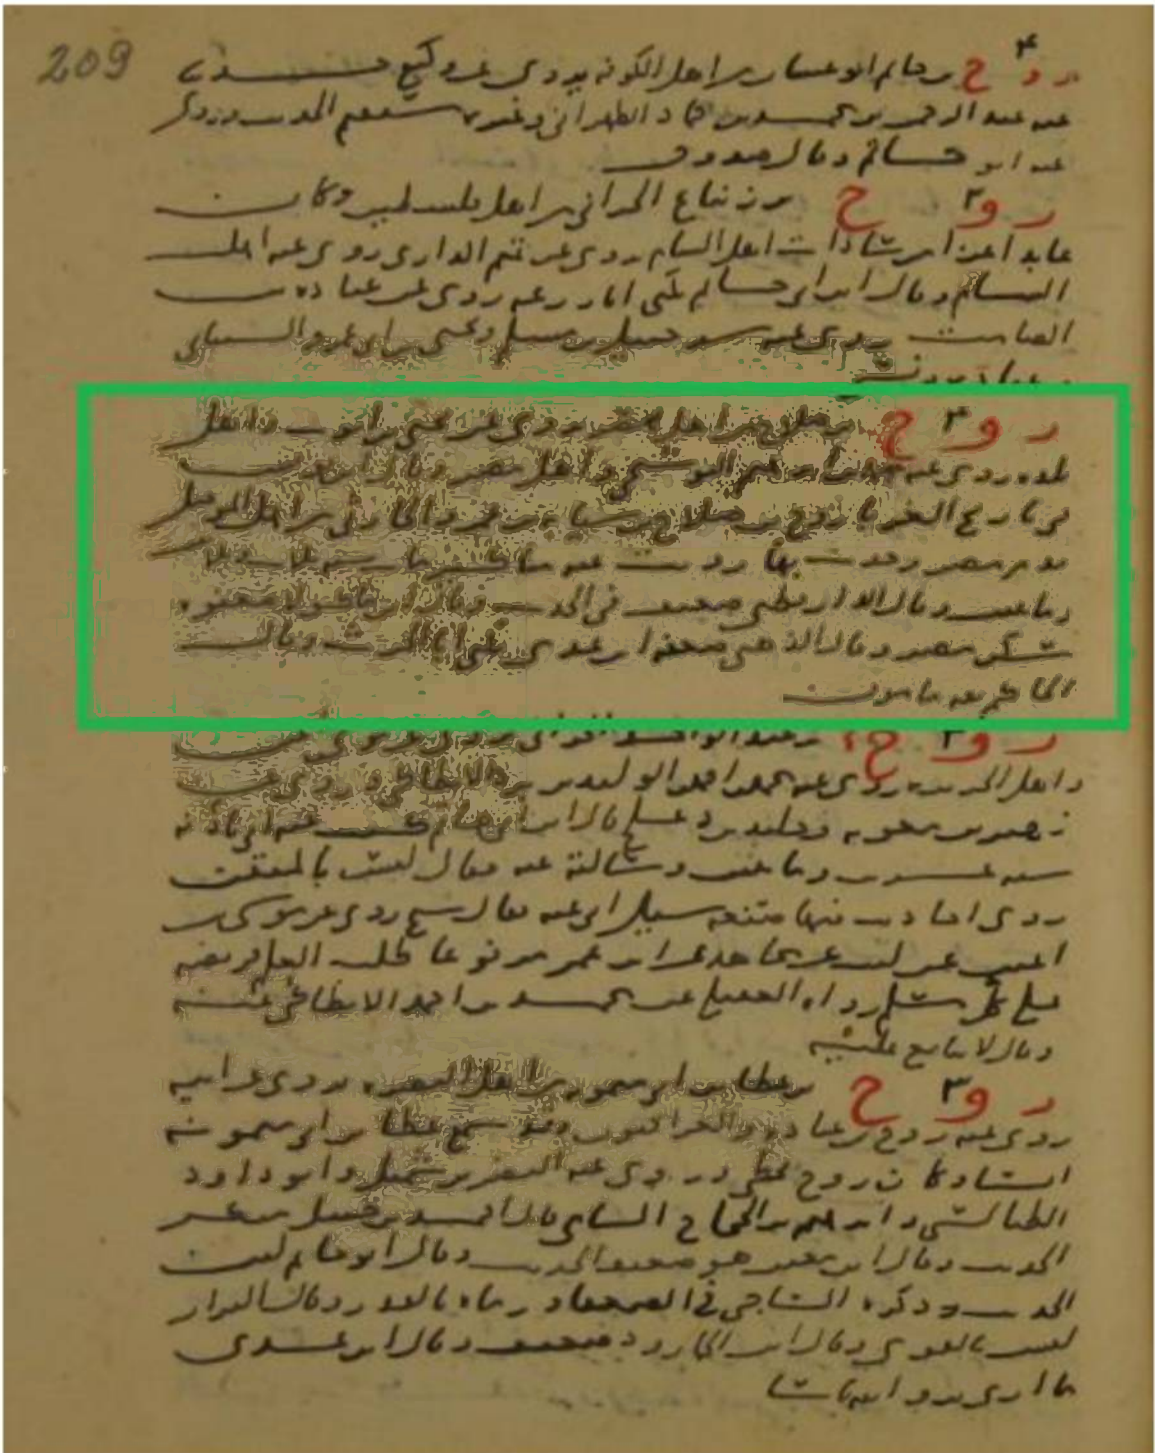 209
روح بن حاتم ابو غسان من اهل الكوفه يروى عن وكيع حدثنا
عنه عبد الرحمن بن محمد بن حماد الطهراني وغيره مستقيم الحديث وروى
عنه ابو حاتم وقال صدوق
روح بن زنباع الجذامي من اهل فلسطين وكان
عابدا غزا من سادات اهل الشام يروى عن تميم الدارى روى عنه اهل
الشام وقال ابن ابى حاتم يكنى ابا زرعه روى عن عباده بن
الصامت روى عنه شرحبيل بن مسلم ويحيى بن ابى عمرو السيباني
روح بن صلاح من اهل مصر يروى عن يحيى بن ايوب واهل
بلده روى عنه محمد بن ابراهيم البوشنجي واهل مصر وقال ابن يونس
في تاريخ الغربا روح بن صلاح بن سيابه بن عمرو الحارثي من اهل الموصل
قدم مصر وحدث بها رويت عنه مناكير مات سنه ثلاث وثلاثين
ومايتين وقال الدارقطني ضعيف في الحديث وقال ابن ماكولا ضعفوه
سكن مصر وقال الذهبي ضعفه ابن عدى يكنى ابا الحرث وقال
الحاكم ثقه مامون
روح بن عبد الواحد الحراني يروى عن موسى بن اعين
واهل الجزيره روى عنه محمد بن احمد بن الوليد بن برد الانطاكي وروى عن
زهير بن معويه وخليد بن دعلج قال ابن ابى حاتم كتب عنه ابى باذنه
سنه عشرين ومايتين وسالته عنه فقال ليس بالمتقن
روى احاديث فيها صنعه سيل ابى عنه فقال شيخ روى عن موسى بن
اعين عن ليث عن مجاهد عن ابن عمر مرفوعا طلب العلم فريضه
على كل مسلم رواه العقيلي عن محمد بن احمد الانطاكي عنه
وقال لا يتابع عليه
روح بن عطا بن ابى ميمونه من اهل البصره يروى عن ابيه
روى عنه روح بن عباده والعراقيون وقد سمع عطا بن ابى ميمونه
انسا وكان روح يخطى وروى عنه النضر بن شميل وابو داود
الطيالسي وابراهيم بن الحجاج السامي قال احمد بن حنبل منكر
الحديث وقال ابن معين هو ضعيف الحديث وقال ابو حاتم ليس
الحديث وذكره الساجي في الضعفا ورماه بالقدر وقال البزار
ليس بالقوى وقال ابن الجارود ضعيف وقال ابن عدى
ما ارى برواياته باسا